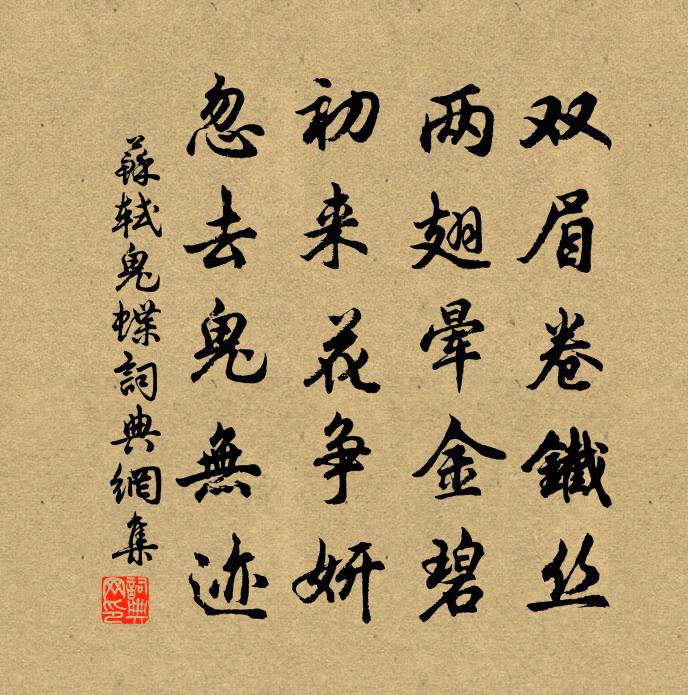 双眉卷鐵丝
两翅暈金碧
初来花争妍
忽去鬼無迹
蘇軾鬼蝶詞典網集
詞典網印